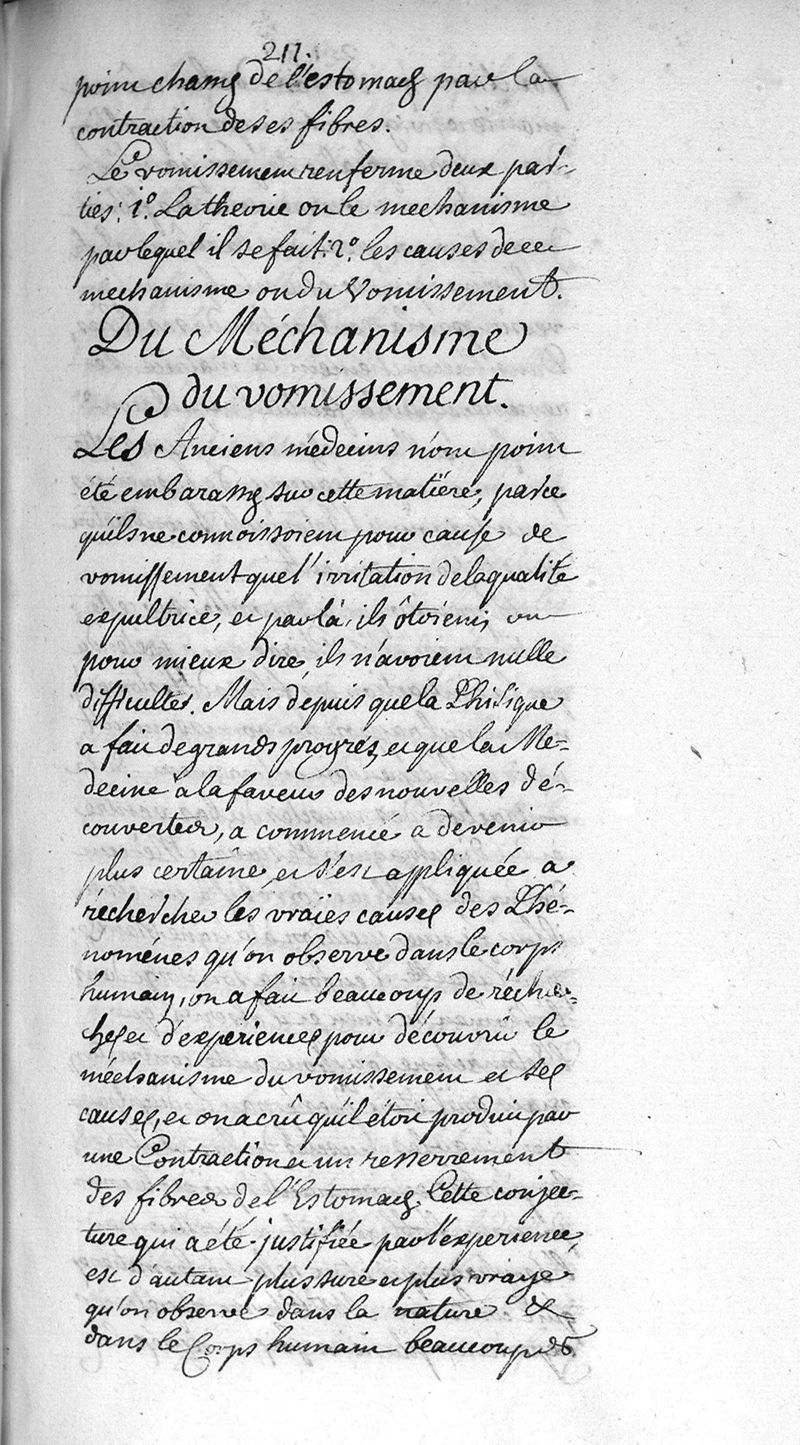 211.
point chassé de l'estomach par la
contraction de ses fibres.
Le vomissement renferme deux par-
ties: 1.° La théorie ou le mechanisme
par lequel il se fait. 2.° les causes de ce
mechanisme ou du Vomissement.
Du Méchanisme
du vomissement.
Les Anciens médecins n'ont point
été embarassés sur cette matiére, parce
qu'ils ne connoissoient pour cause de
vomissement que l'irritation de la qualité
expultrice, et par là, ils ôtoient, ou
pour mieux dire, ils n'avoient nulle
difficultés. Mais dépuis que la Phisique
a fait de grands progrés, et que la Me-
decine à la faveur des nouvelles dé-
couvertes, a commencé a devenir
plus certaine, et s'est appliquée a
réchercher les vraïes causes des Phé-
noménes qu'on observe dans le corps
humain, on a fait beaucoup de réchér-
ches et d'experiences pour découvrir le
méchanisme du vomissement et ses
causes, et on a crû qu'il étoit produit par
une Contraction et un resserrement
des fibres de l'Estomach. Cette conjec-
ture qui a été justifiée par l'experience,
est d'autant plus sure et plus vraye
qu'on observe dans la nature &
dans le Corps humain beaucoup de